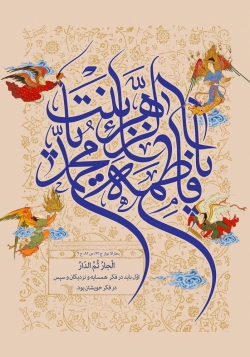 یا فاطمة الزهراء یا بنت محمد
الجارُ ثُمَّ الدّارُ
اوّل باید در فکر همسایه و نزدیکان و سپس
در فکر خویشتن بود.